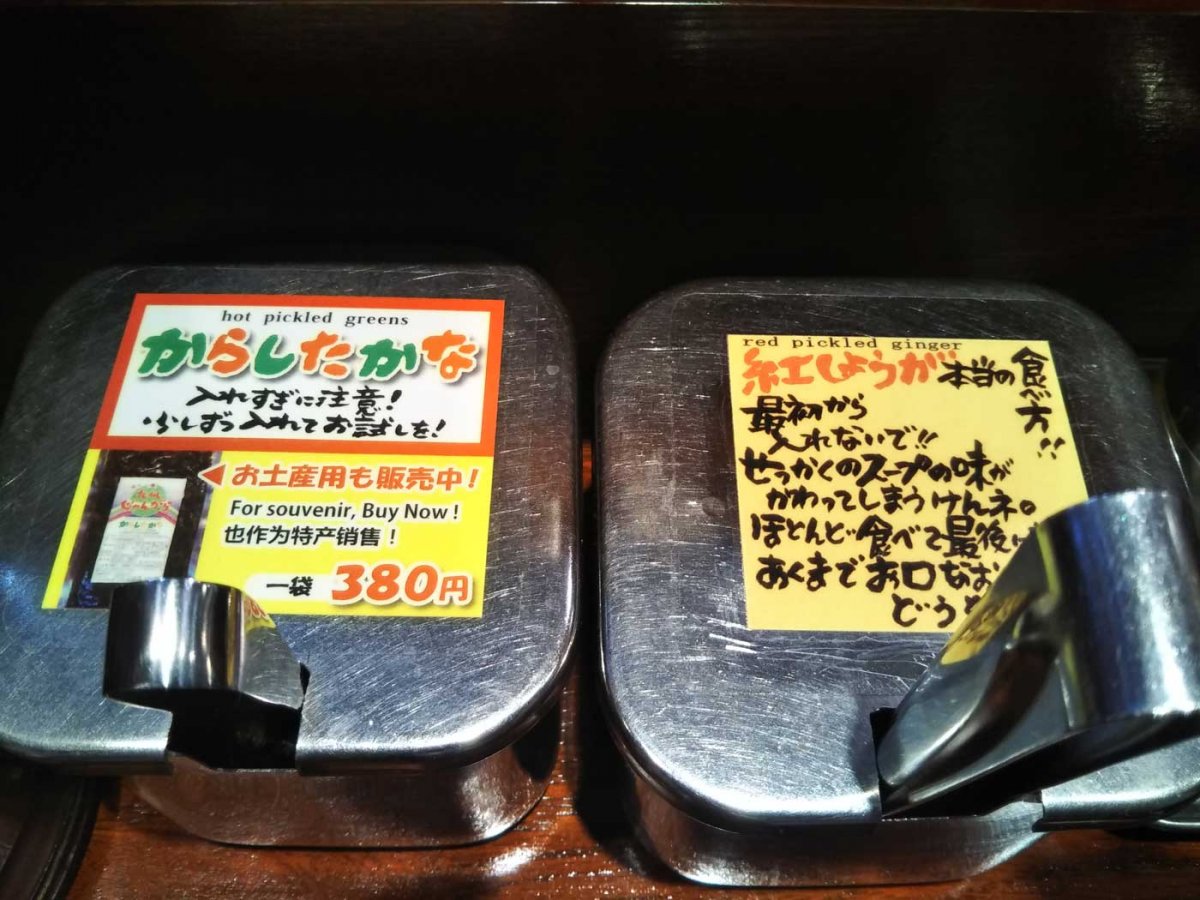 hot pickled greens
からしたかな
入れすぎに注意!
少しずつ入れてお試しを!
お土産用も販売中!
For souvenir, Buy Now!
也作为特产销售!
一袋 380円
red pickled ginger
紅しょうが本当の食べ方!!
最初から
入れないで!!
せっかくのスープの味が
がわってしまうけんネ。
ほとんど食べて最後
あくまでお口なお
どう